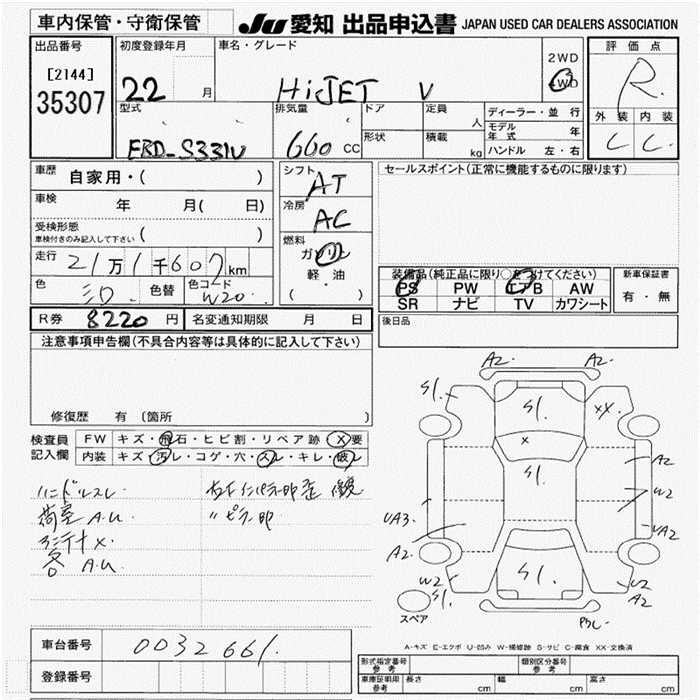 車内保管・守衛保管 JU 愛知 出品申込書 JAPAN USED CAR DEALERS ASSOCIATION
出品番号 初度登録年月 車名・グレード 評価点
[2144] 2WD
35307 22 月 HiJET V 4WD R
型式 排気量 ドア 定員 人 ディーラー・並行 外装 内装
EBD-S331V 660 CC 形状 積載 kg モデル年式 年 C C
ハンドル 左・右
車歴 自家用・( ) シフト AT セールスポイント(正常に機能するものに限ります)
車検 年 月( 日) 冷房 AC
受検形態
車検付きのみ記入して下さい ( )
走行 21万1千607km 燃料 ガソリン
軽・油
( )
色 シロ 色替 色コード W20 装備品(純正品に限り○をつけてください) 新車保証書
PS PW エアB AW 有・無
SR ナビ TV カワシート
R券 8220円 名変通知期限 月 日 後日品
注意事項申告欄(不具合内容等は具体的に記入して下さい)
修復歴 有 (箇所 )
検査員 FW キズ・飛石・ヒビ割・リペア跡 (X)要
記入欄 内装 キズ・汚レ・コゲ・穴・スレ・キレ・破レ
ハンドルスレ
荷室 A.U
A2. A2.
S1. S1. XX
X
S1. A2
W2
UA3. UA2
A2. A2
W2 S1. S1. U2
A2
スペア
A-キズ E-エクボ U-凹み W-補修跡 S-サビ C-腐食 XX-交換済
車台番号 0032661.
登録番号
形式指定番号 参考 類別区分番号 参考
車庫証明用 参考 長さ cm 幅 cm 高さ cm